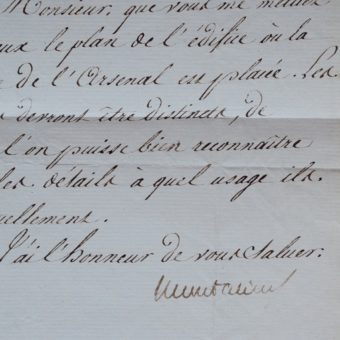 Monsieur, que vous me mettiez
le plan de l'édifice où la
de l'Arsenal est placée. Les
devront être distincts, de
l'on puisse bien reconnaître
les détails à quel usage ils
uellement.
J'ai l'honneur de vous saluer.